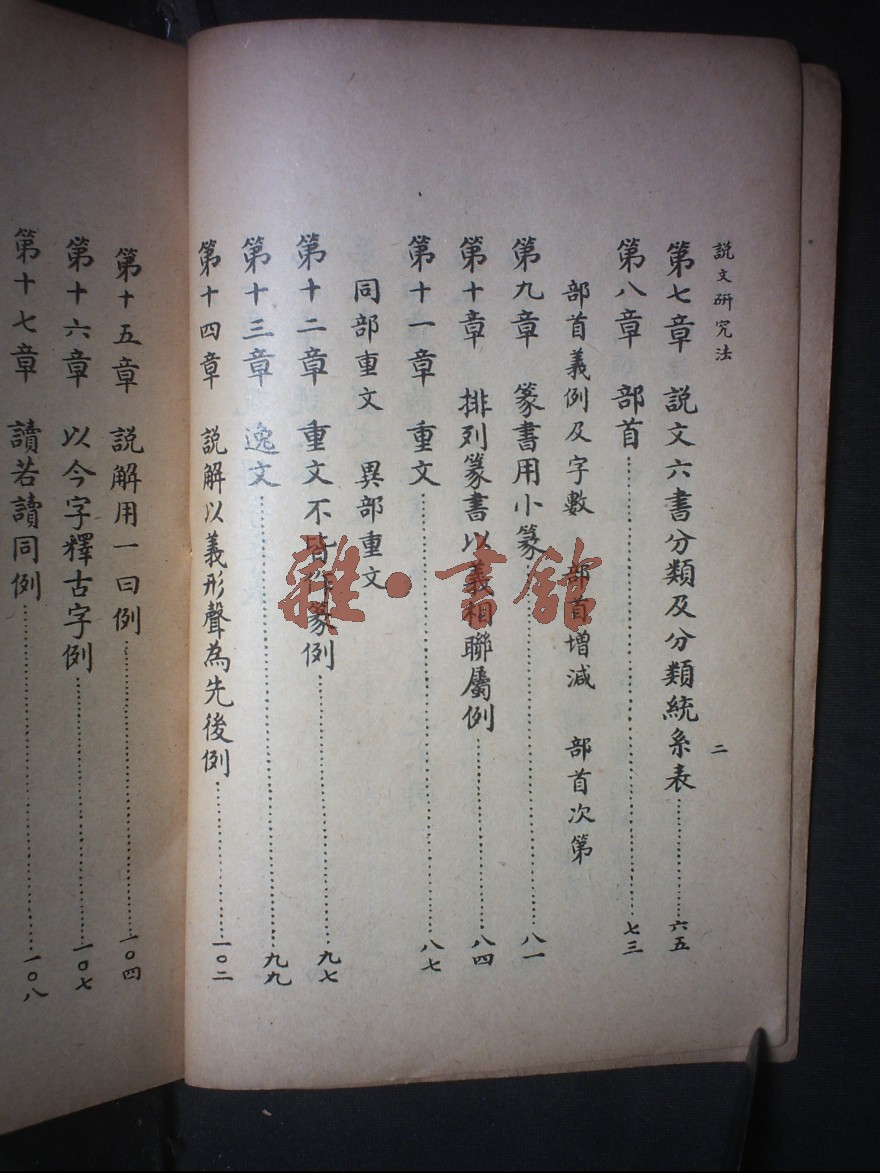 説文研究法
二
第七章　説文六書分類及分類統系表……六五
第八章　部首……七三
部首義例及字數　部首增減　部首次第
第九章　篆書用小篆……八一
第十章　排列篆書以義相聯屬例……八四
第十一章　重文……八七
同部重文　異部重文
第十二章　重文不皆作篆例……九七
第十三章　逸文……九九
第十四章　説解以義形聲為先後例……一〇二
第十五章　説解用一曰例……一〇四
第十六章　以今字釋古字例……一〇七
第十七章　讀若讀同例……一〇八
雜·書館